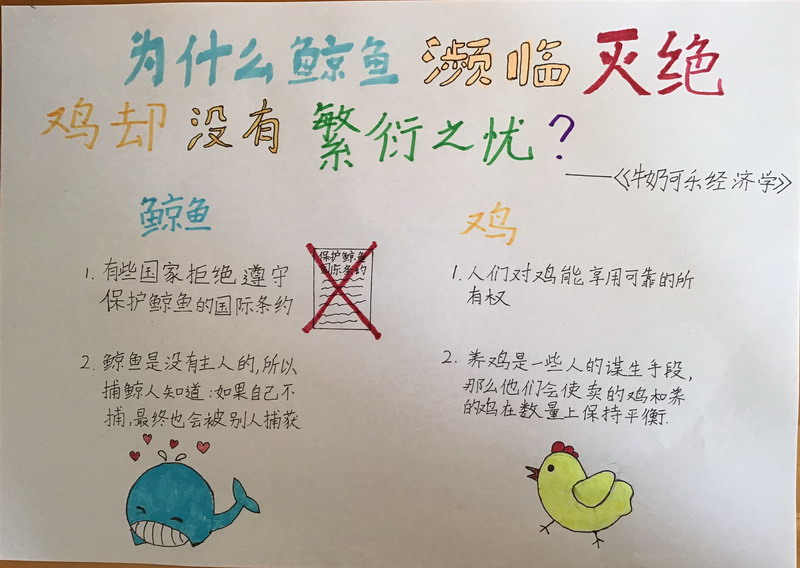 为什么鲸鱼濒临灭绝
鸡却没有繁衍之忧?
——《牛奶可乐经济学》
鲸鱼
1. 有些国家拒绝遵守
保护鲸鱼的国际条约
保护鲸鱼
国际条约
2. 鲸鱼是没有主人的,所以
捕鲸人知道:如果自己不
捕,最终也会被别人捕获
鸡
1. 人们对鸡能享用可靠的所
有权
2. 养鸡是一些人的谋生手段,
那么他们会使卖的鸡和养
的鸡在数量上保持平衡.